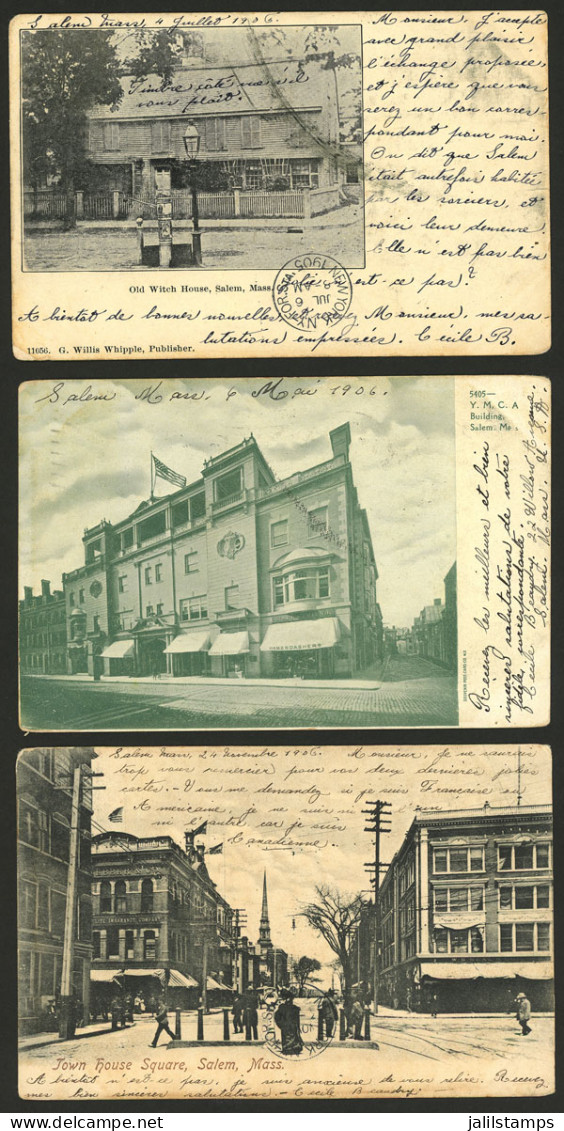 Salem Mass, 4 Juillet 1906.
Timbre côté vue s'il
vous plaît.
Monsieur, J'accepte
avec grand plaisir
l'échange proposée
et j'espère que vous
serez un bon corres-
pondant pour moi.
On dit que Salem
était autrefois habitée
par les sorciers, et
voici leur demeure.
Elle n'est pas bien
est-ce pas?
Old Witch House, Salem, Mass.
NEW YORK, N.Y.
JUL 6
1906
A bientôt de bonnes nouvelles et recevez Monsieur, mes sa-
lutations empressées. Cécile B.
11656. G. Willis Whipple, Publisher.
Salem Mass. 6 Mai 1906.
5405—
Y. M. C. A
Building,
Salem, Ma .
Recevez les meilleurs et bien
sincères salutations de votre
fidèle correspondante
Cécile Beaudry, 22 Willson Avenue
Salem Mass. U. S. A
Salem Mass, 24 Novembre 1906. Monsieur, Je ne saurais
trop vous remercier pour vos deux dernières jolies
cartes. - Vous me demandez si je suis Française ou
Américaine, je ne suis ni l'un
ni l'autre car je suis
Canadienne.
Town House Square, Salem, Mass.
A bientôt n'est ce pas, je suis anxieuse de vous relire. Recevez
mes bien sincères salutations - Cécile Beaudry
jalilstamps